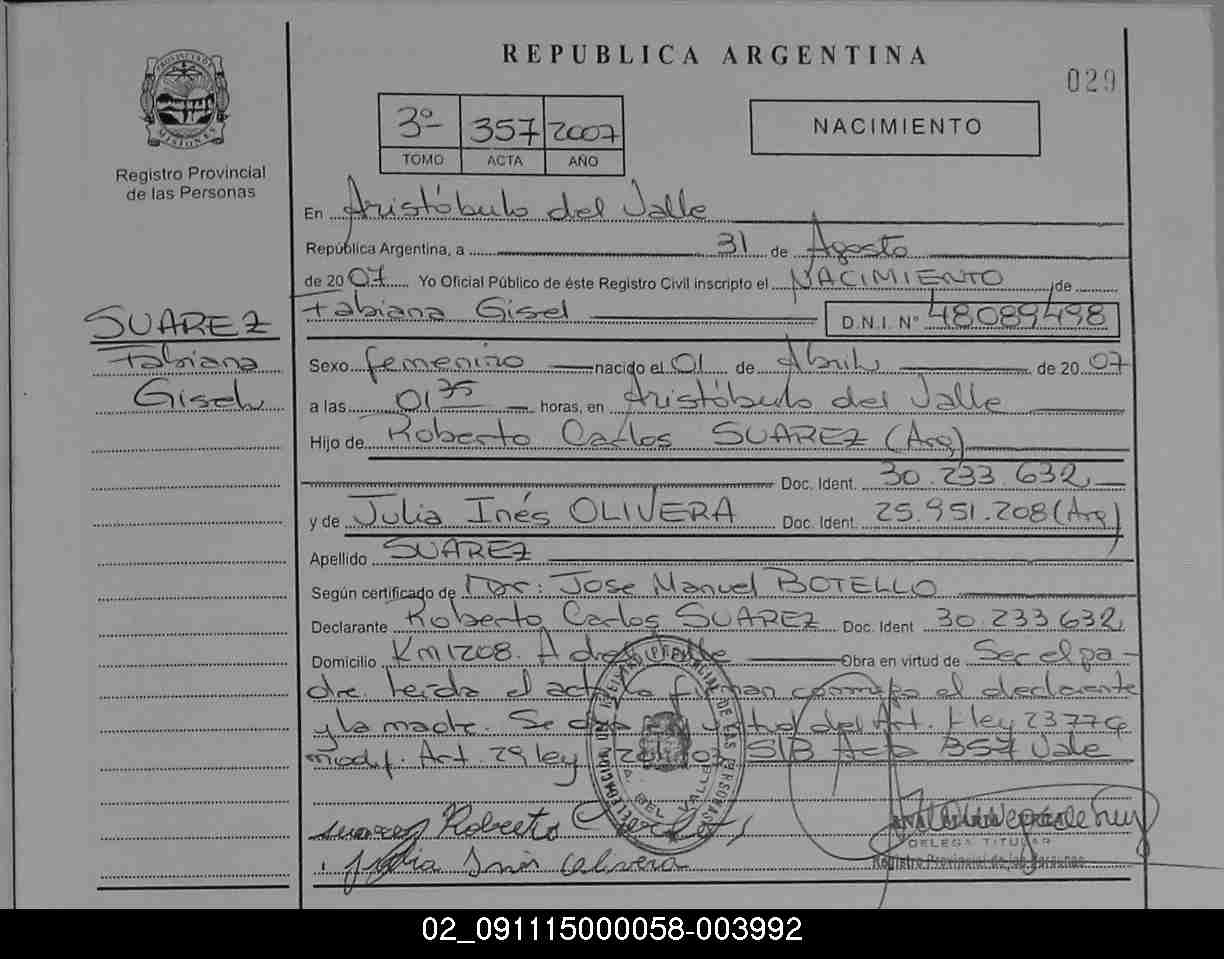 REPUBLICA ARGENTINA
029
PROVINCIA DE MISIONES
Registro Provincial
de las Personas
3º 357 2007
TOMO ACTA AÑO
NACIMIENTO
En Aristóbulo del Valle
República Argentina, a 31 de Agosto
de 2007 Yo Oficial Público de éste Registro Civil inscripto el NACIMIENTO de
Fabiana Gisel D.N.I. N° 48089498
SUAREZ
Fabiana
Gisel
Sexo femenino nacido el 01 de Abril de 2007
a las 01 horas, en Aristóbulo del Valle
Hijo de Roberto Carlos SUAREZ (Arg)
Doc. Ident. 30.233.632
y de Julia Inés OLIVERA Doc. Ident. 25.951.208 (Arg)
Apellido SUAREZ
Según certificado de Dr: Jose Manuel BOTELLO
Declarante Roberto Carlos SUAREZ Doc. Ident 30.233.632
Domicilio Km 1208. A del Valle Obra en virtud de Ser el pa-
dre. leida el acta la firman conmigo el declarante
y la madre. Se en virtud del Art. 1 ley 23776
modif. Art. 29 ley S/B Acta 357 Vale
REGISTRO PROVINCIAL DE LAS PERSONAS
A. DEL VALLE
suarez Roberto Carlos
Julia Inés Olivera
DELEGA TITULAR
Registro Provincial de las Personas
02_091115000058-003992